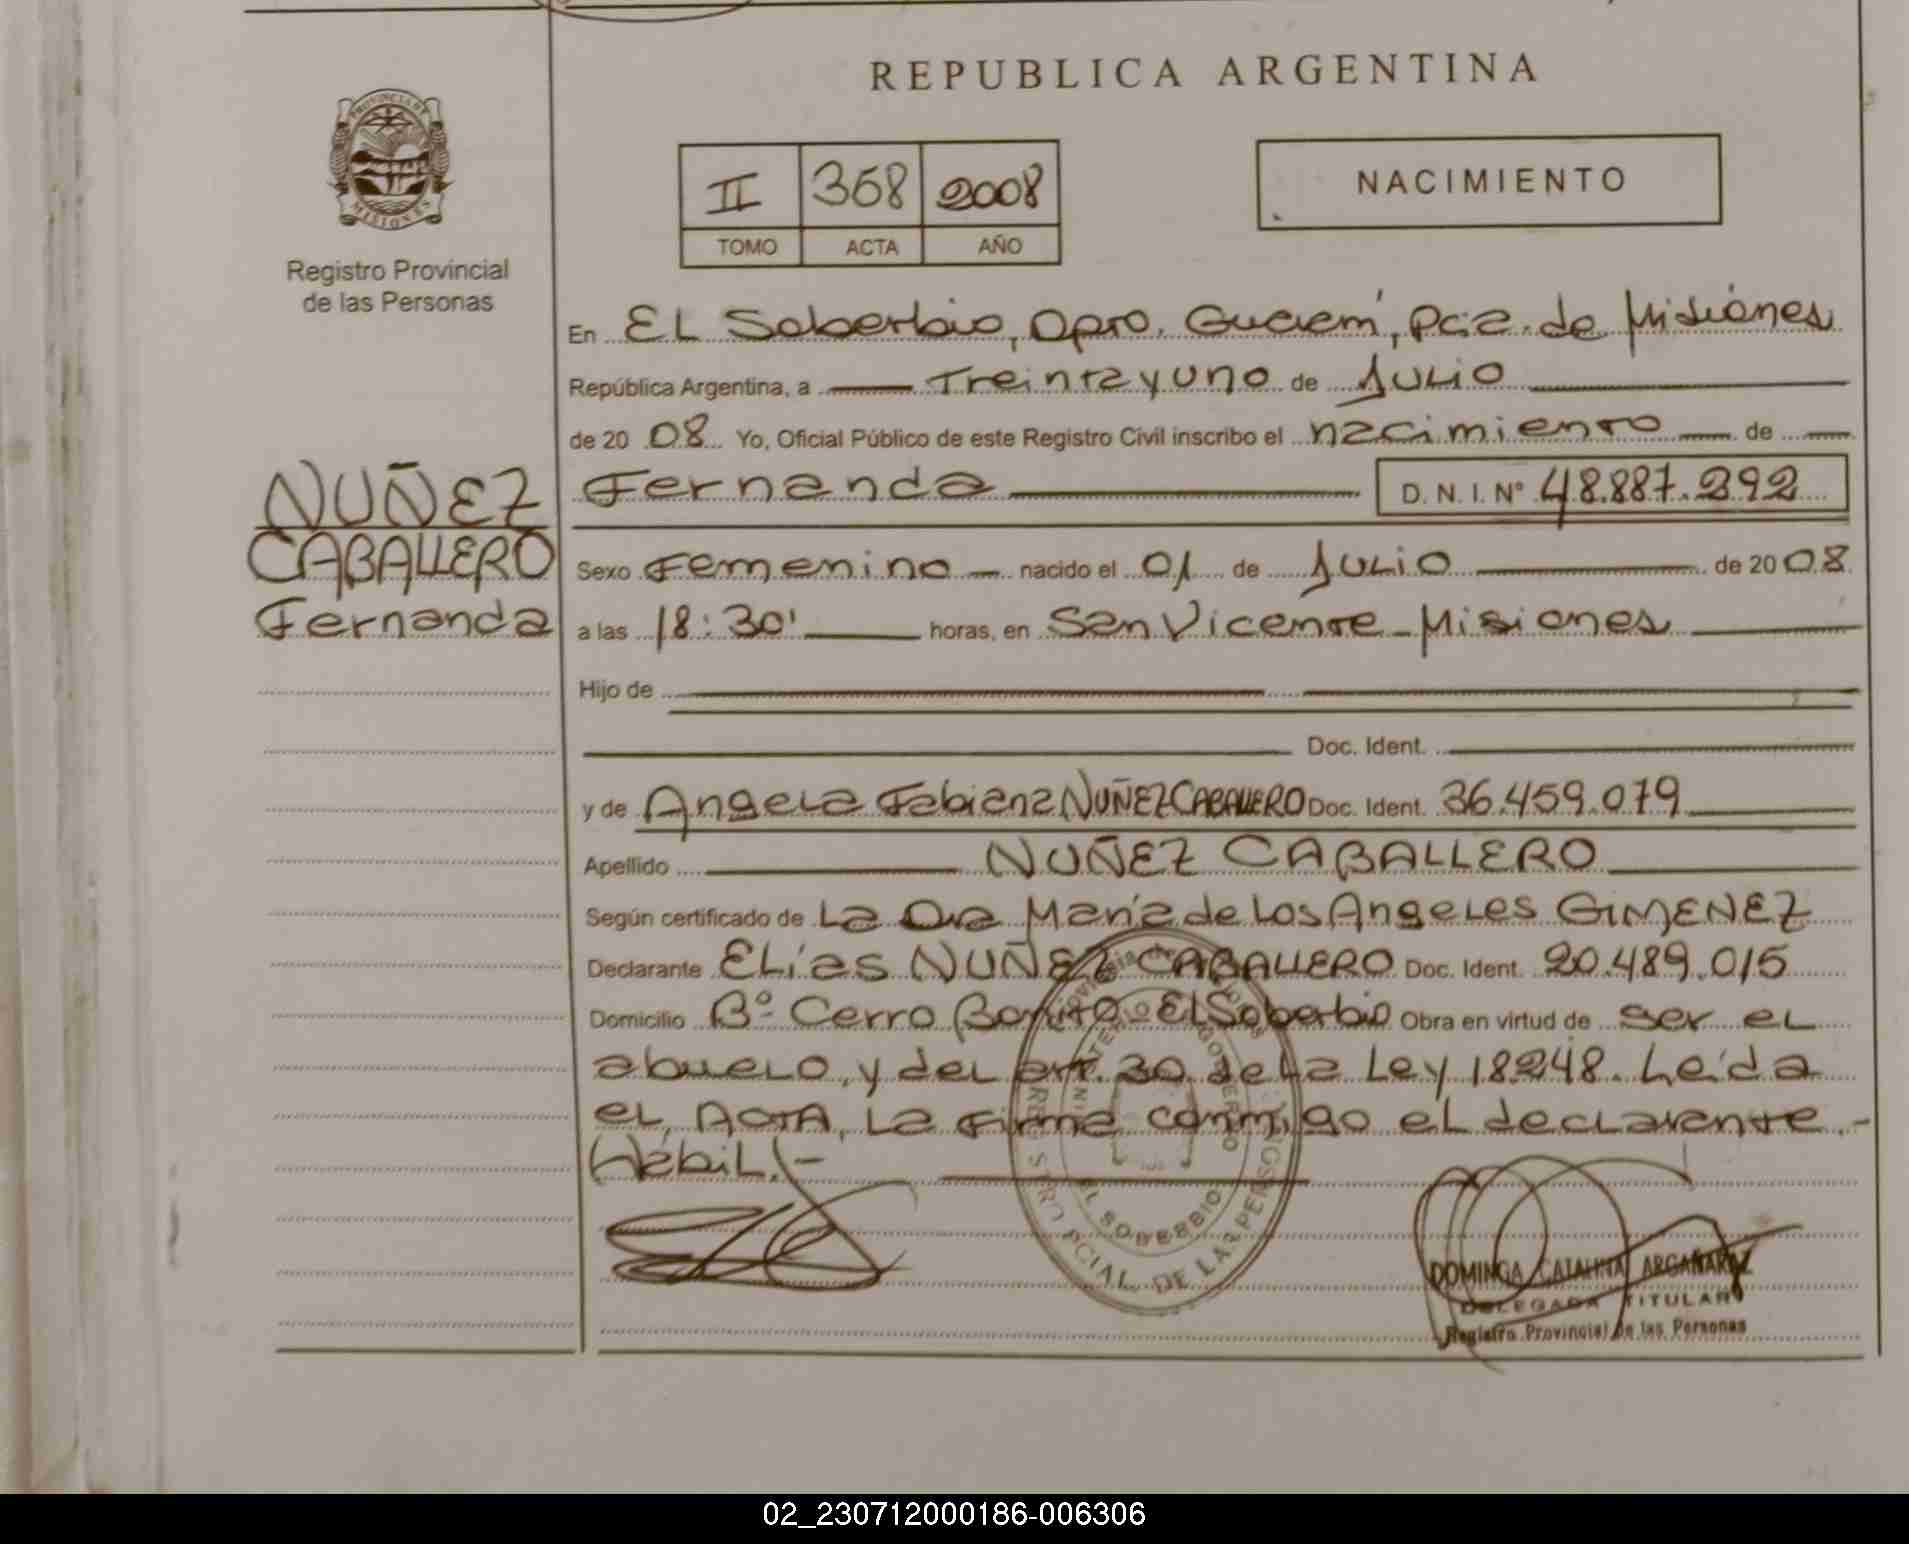 REPUBLICA ARGENTINA
PROVINCIA DE
MISIONES
Registro Provincial
de las Personas
II 368 2008
TOMO ACTA AÑO
NACIMIENTO
En EL Soberbio, Dpto. Guaraní, Pcia. de Misiones
República Argentina, a Treinta y uno de Julio
de 20 08 Yo, Oficial Público de este Registro Civil inscribo el nacimiento de
NUÑEZ
CABALLERO
Fernanda
Fernanda D. N. I. Nº 48.887.292
Sexo Femenino nacido el 01 de Julio de 20 08
a las 18:30' horas, en San Vicente - Misiones
Hijo de
Doc. Ident.
y de Angela Fabiana NUÑEZ CABALLERO Doc. Ident. 36.459.079
Apellido NUÑEZ CABALLERO
Según certificado de La Dra María de Los Angeles GIMENEZ
Declarante Elías NUÑEZ CABALLERO Doc. Ident. 20.489.015
Domicilio Bº Cerro Bonito - El Soberbio Obra en virtud de ser el
abuelo, y del art. 30 de la Ley 18248. Leída
el ACTA, La firma conmigo el declarante.-
Hábil.-
EL SOBERBIO
PCIAL. DE LAS PERSONAS
DOMINGA CATALINA ARGAÑARAZ
DELEGADA TITULAR
Registro Provincial de las Personas
02_230712000186-006306